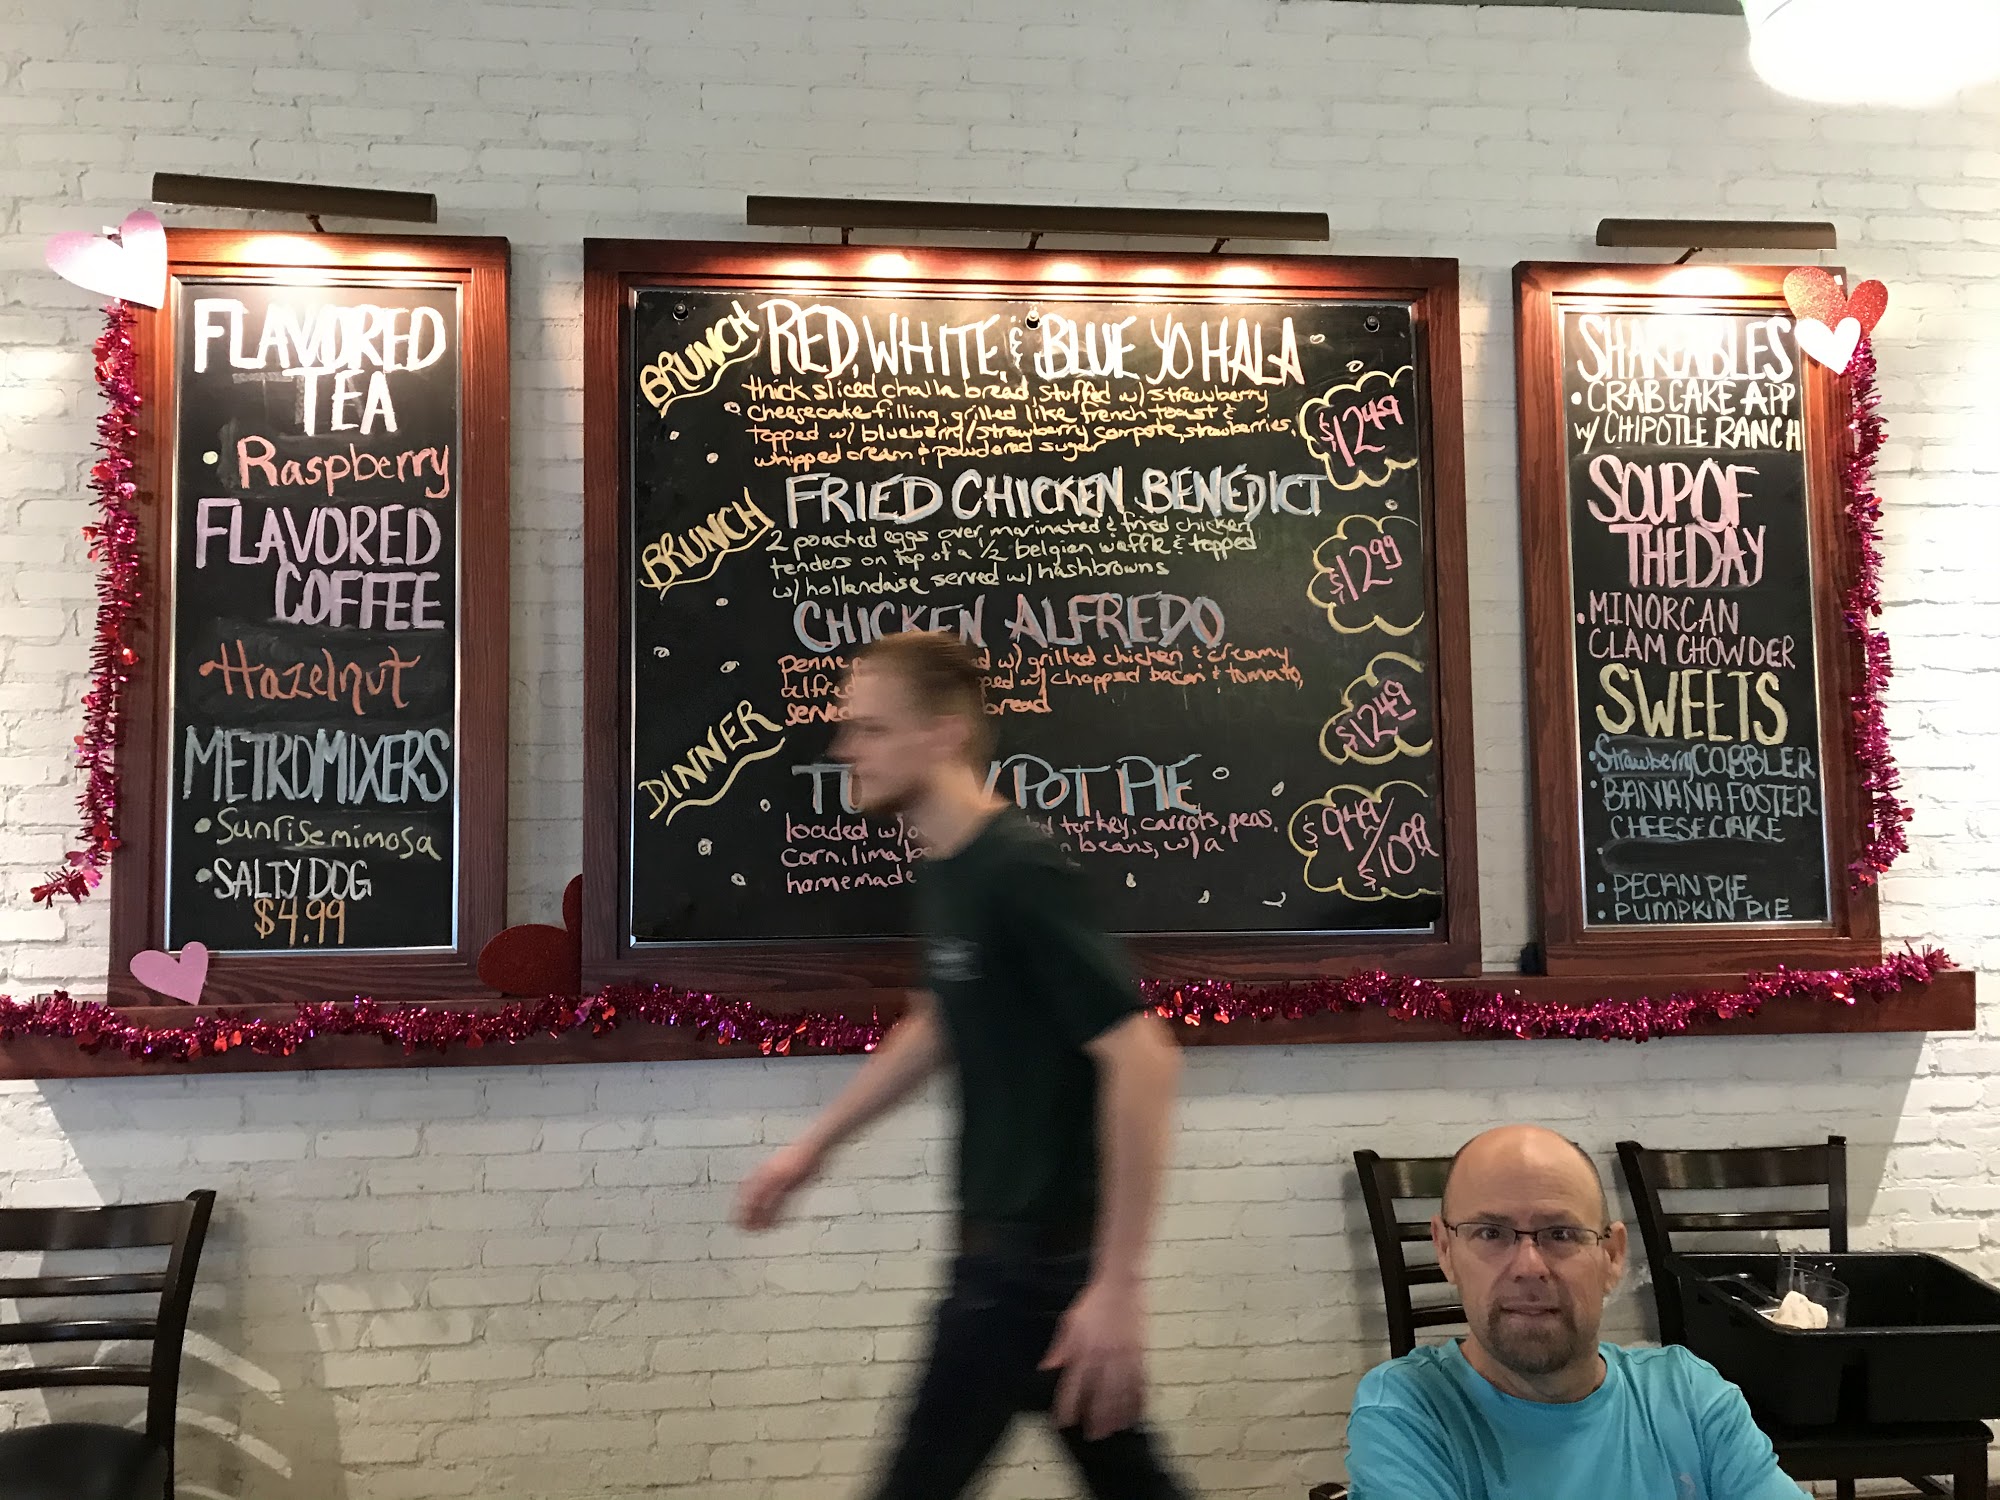 FLAVORED
TEA
• Raspberry
FLAVORED
COFFEE
• Hazelnut
METROMIXERS
• Sunrise mimosa
• SALTY DOG
$4.99
BRUNCH
RED, WHITE, & BLUE YO HALA
thick sliced challa bread, stuffed w/ strawberry
cheesecake filling, grilled like french toast &
topped w/ blueberry/strawberry compote, strawberries,
whipped cream & powdered sugar
$12.49
BRUNCH
FRIED CHICKEN BENEDICT
2 poached eggs over marinated & fried chicken
tenders on top of a 1/2 belgian waffle & topped
w/ hollandaise served w/ hashbrowns
$12.99
DINNER
CHICKEN ALFREDO
penne w/ grilled chicken & creamy
w/ chopped bacon & tomato,
bread
$12.49
POT PIE
loaded w/ turkey, carrots, peas,
corn, lima beans, w/ a
homemade
$9.49/$10.99
SHAREABLES
• CRAB CAKE APP
w/ CHIPOTLE RANCH
SOUP OF
THE DAY
• MINORCAN
CLAM CHOWDER
SWEETS
• Strawberry COBBLER
• BANANA FOSTER
CHEESECAKE
• PECAN PIE
• PUMPKIN PIE